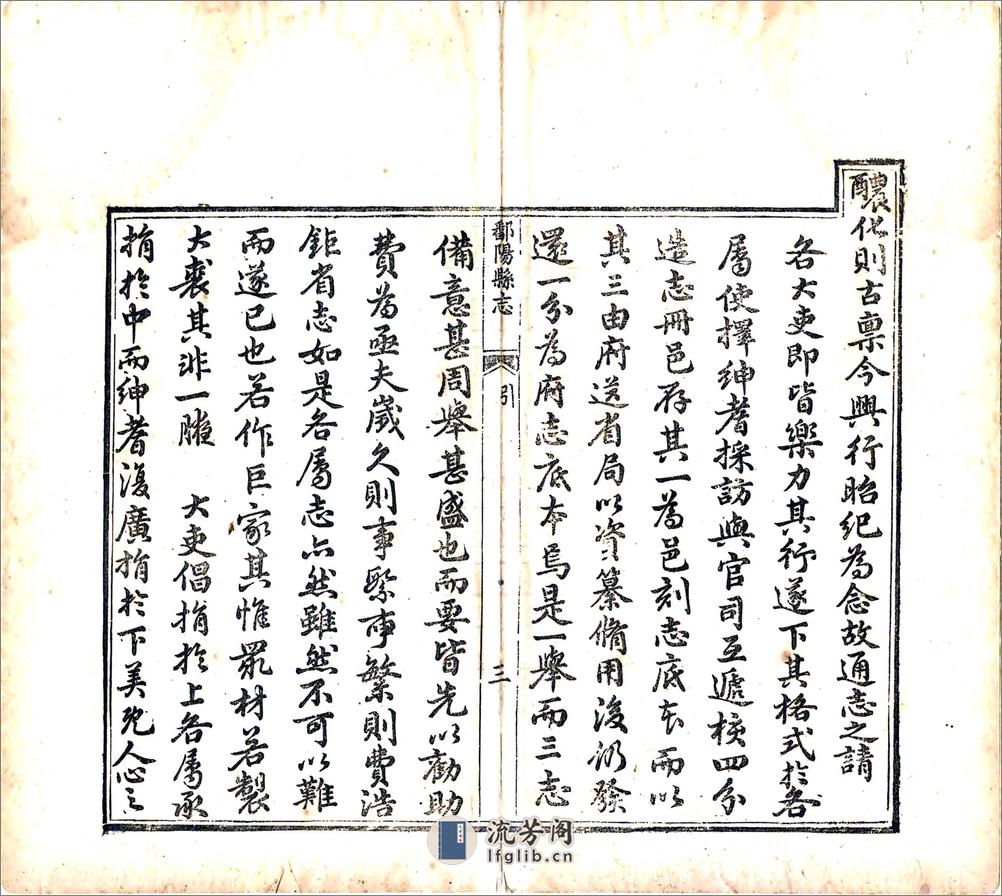 醲化則古稟今興行昭紀為念故通志之請
各大吏即皆樂力其行遂下其格式於各
屬使擇紳耆採訪與官司互遞核四分
造志冊邑存其一為邑刻志底本而以
其三由府送省局以資纂脩用後仍發
還一分為府志底本焉是一舉而三志
鄱陽縣志
引
三
備意甚周舉甚盛也而要皆先以勸助
費為亟夫歲久則事繫事繁則費浩
鉅省志如是各屬志亦然雖然不可以難
而遂已也若作巨家其惟眾材若製
大裘其非一腋　大吏倡捐於上各屬承
捐於中而紳耆復廣捐於下美矣人心之
流芳阁
lfglib.cn